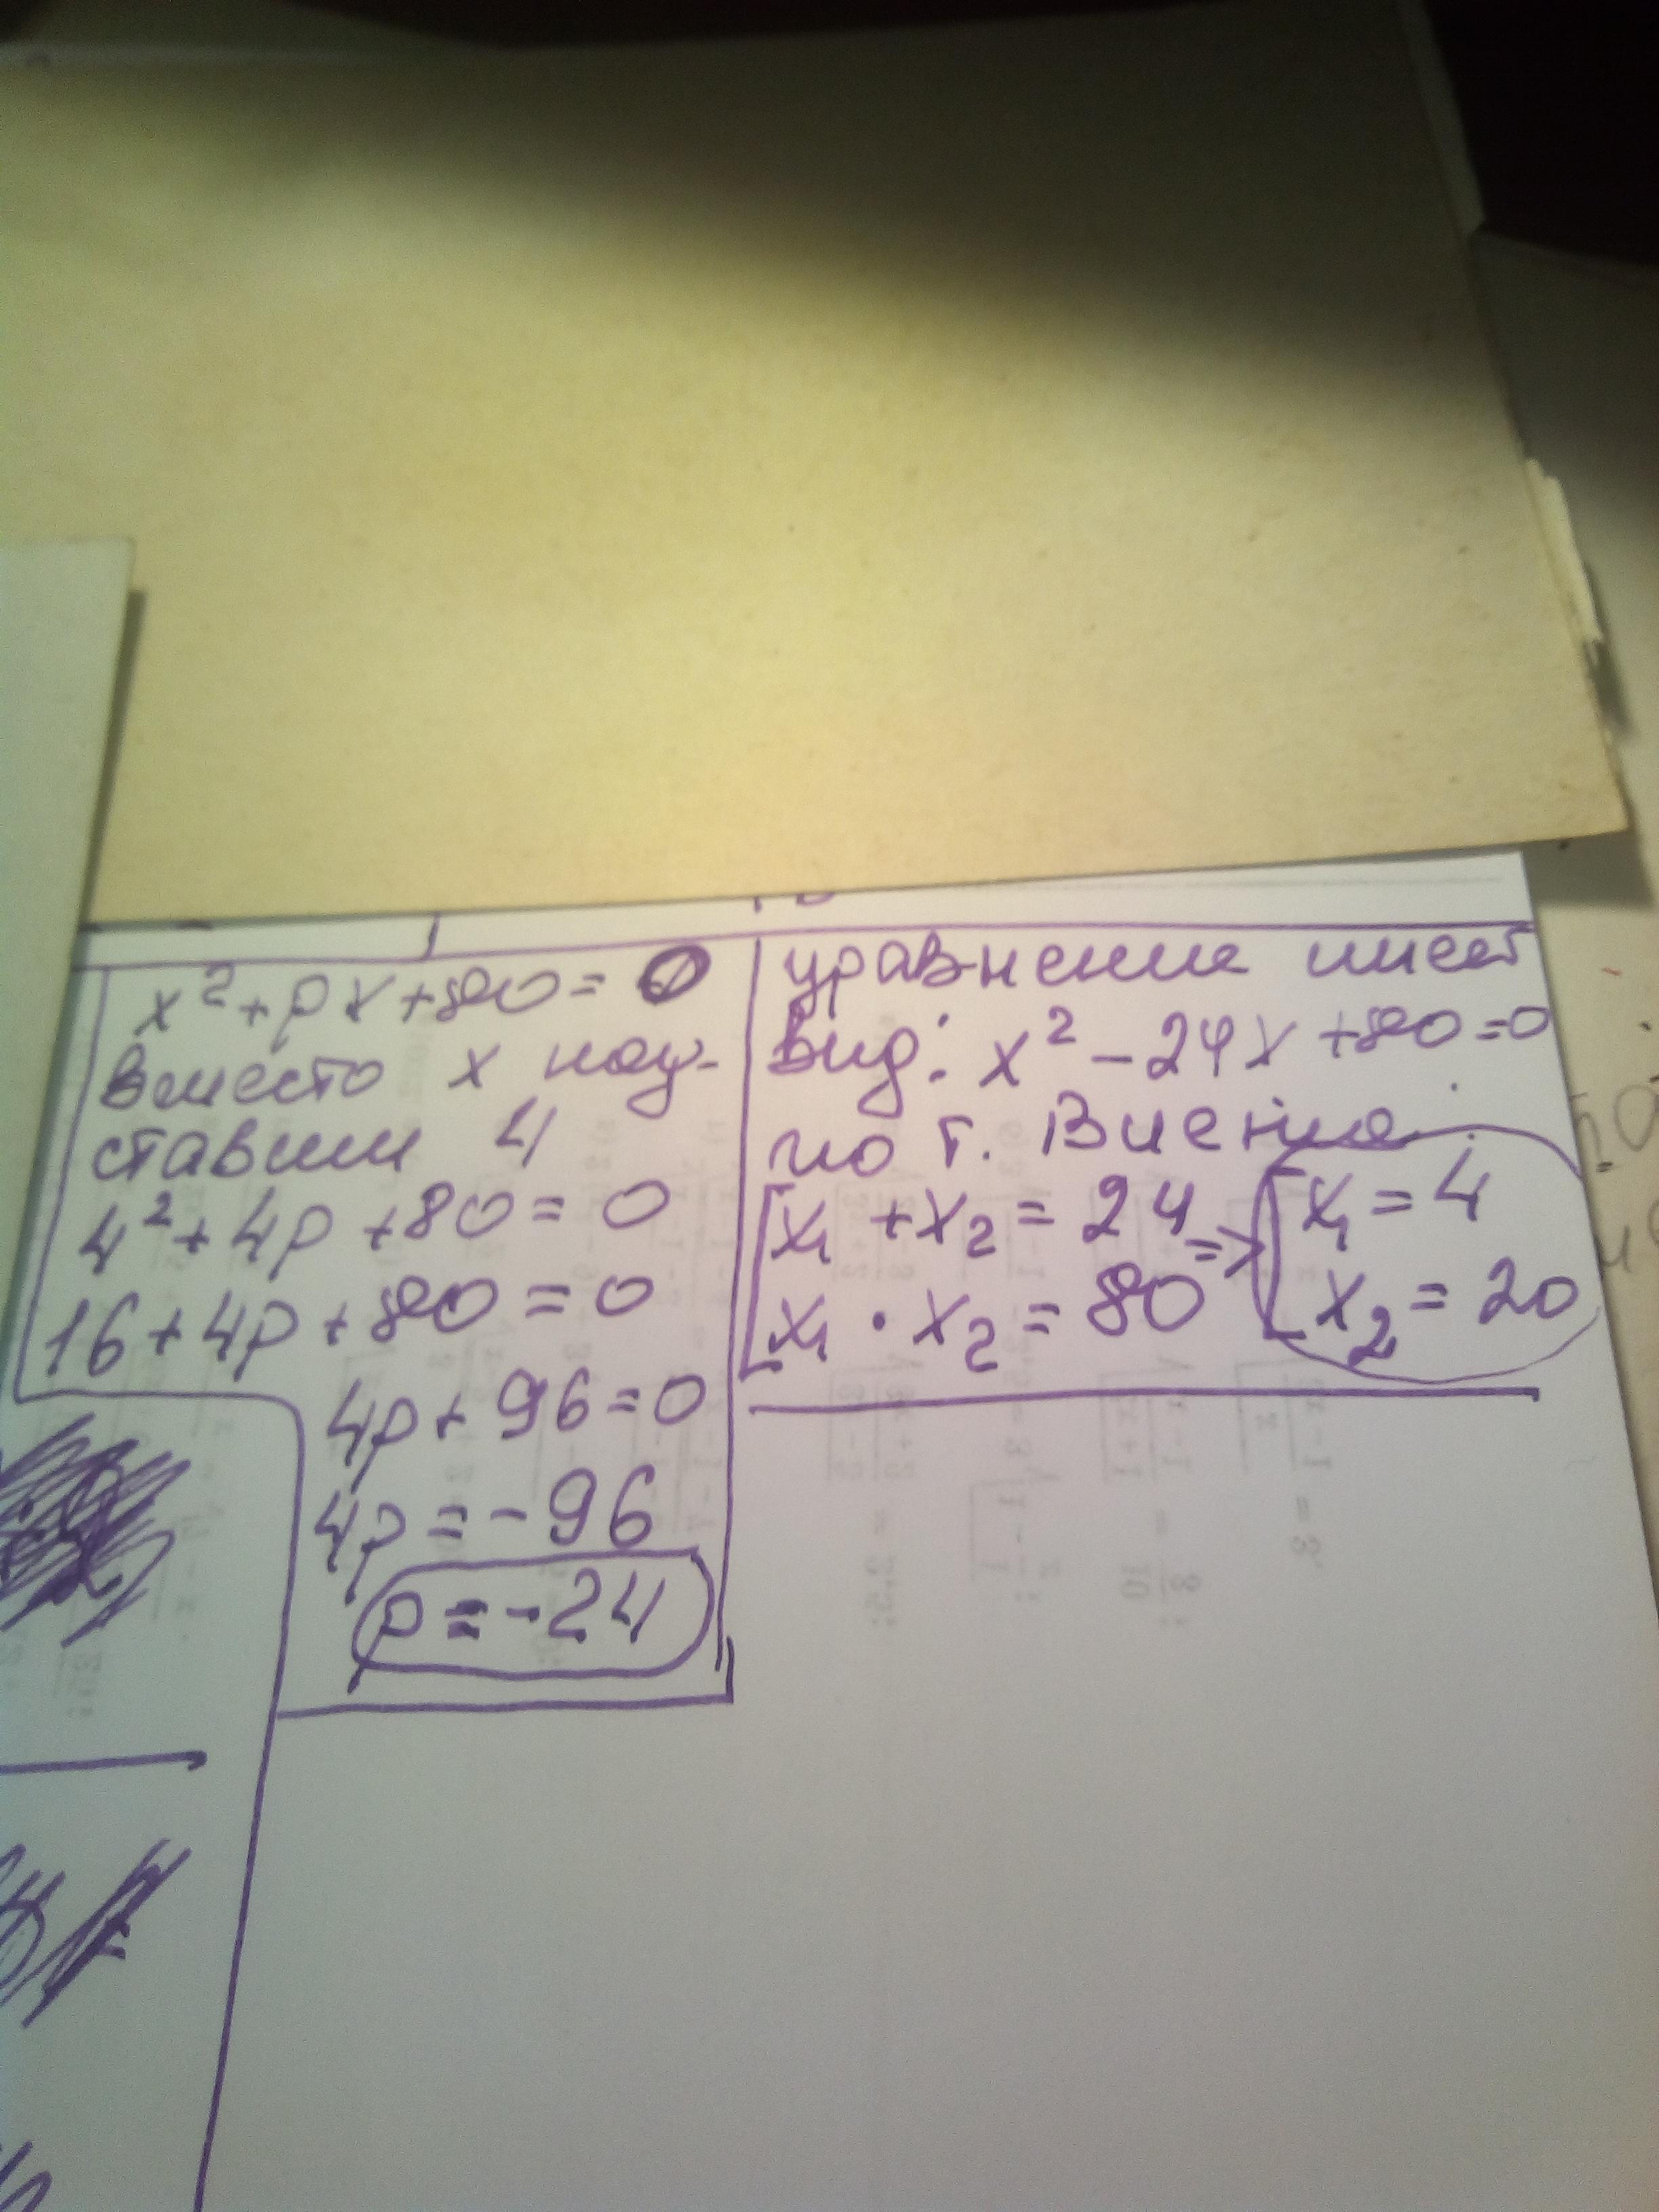 x² + px + 80 = 0
вместо x под-
ставим 4
4² + 4p + 80 = 0
16 + 4p + 80 = 0
4p + 96 = 0
4p = -96
p = -24
уравнение имеет
вид: x² - 24x + 80 = 0
по т. Виета
x₁ + x₂ = 24 => x₁ = 4
x₁ · x₂ = 80 x₂ = 20